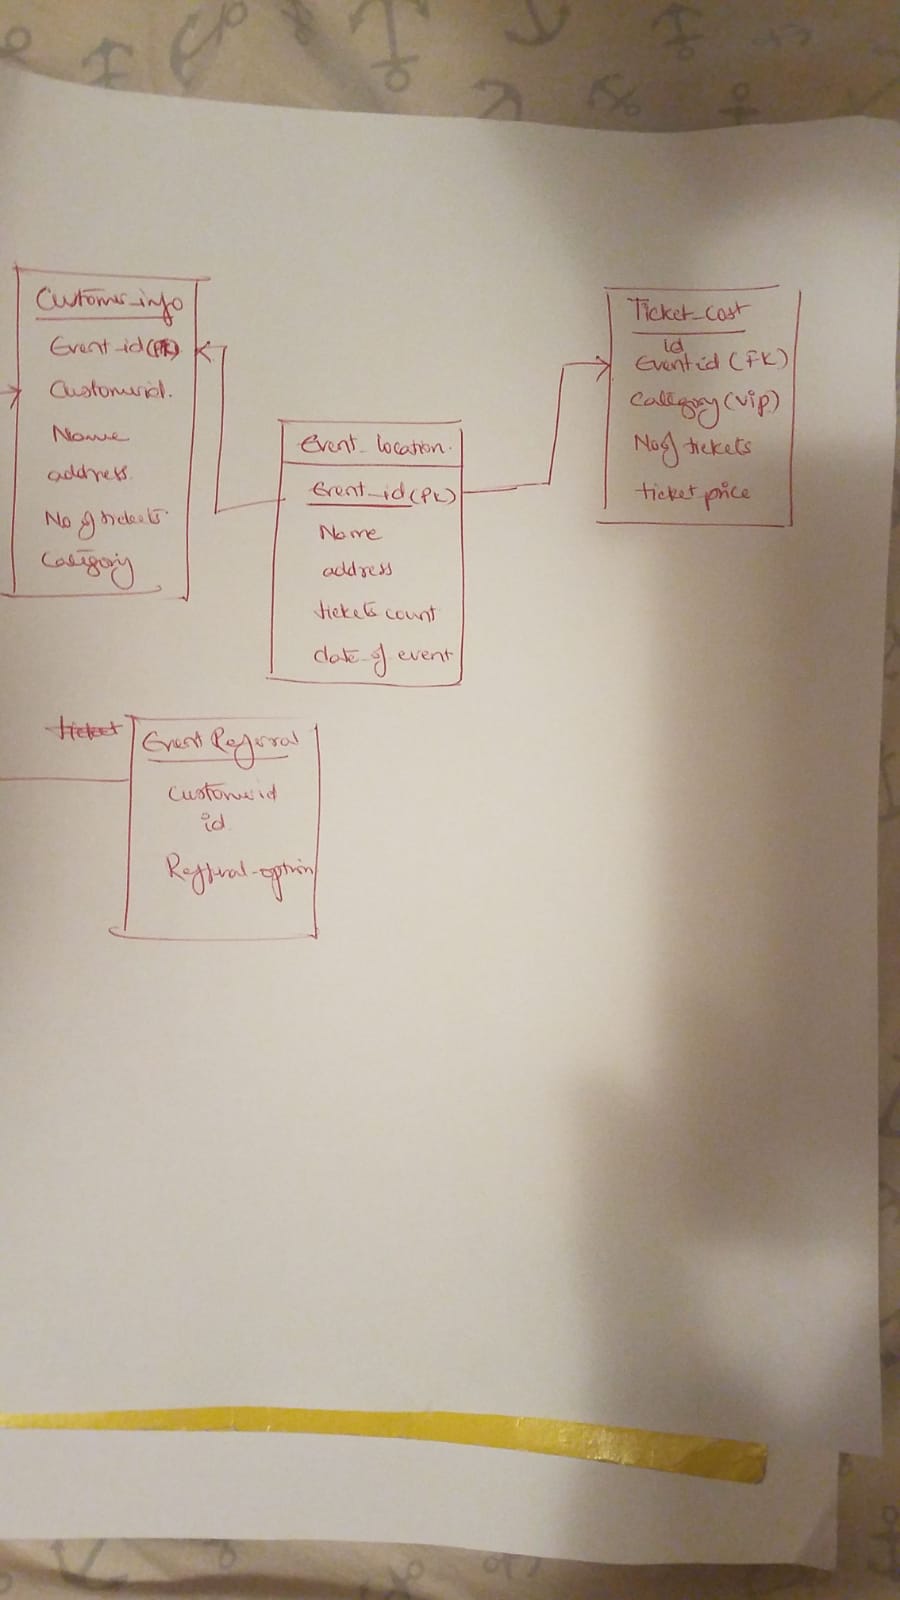 Customer_info
Event_id
Customerid.
Name
address
No of tickets
Category
Event_location.
Event_id(PK)
Name
address
tickets count
date of event
Ticket_cost
id
Eventid (FK)
Category(vip)
No of tickets
ticket price
ticket
Event Referral
Customerid
id
Referral-option